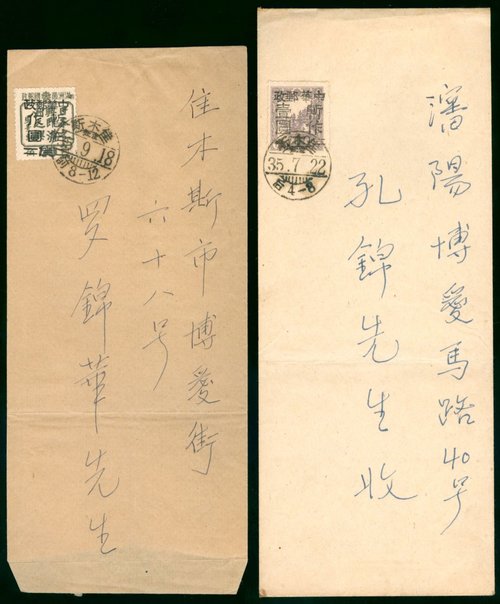 佳木斯市博愛街
六十八号
罗錦華先生
9.18
8-12
瀋陽博愛馬路40号
孔錦先生收
中華郵政
暫作
壹圓
35.7.22
4-8